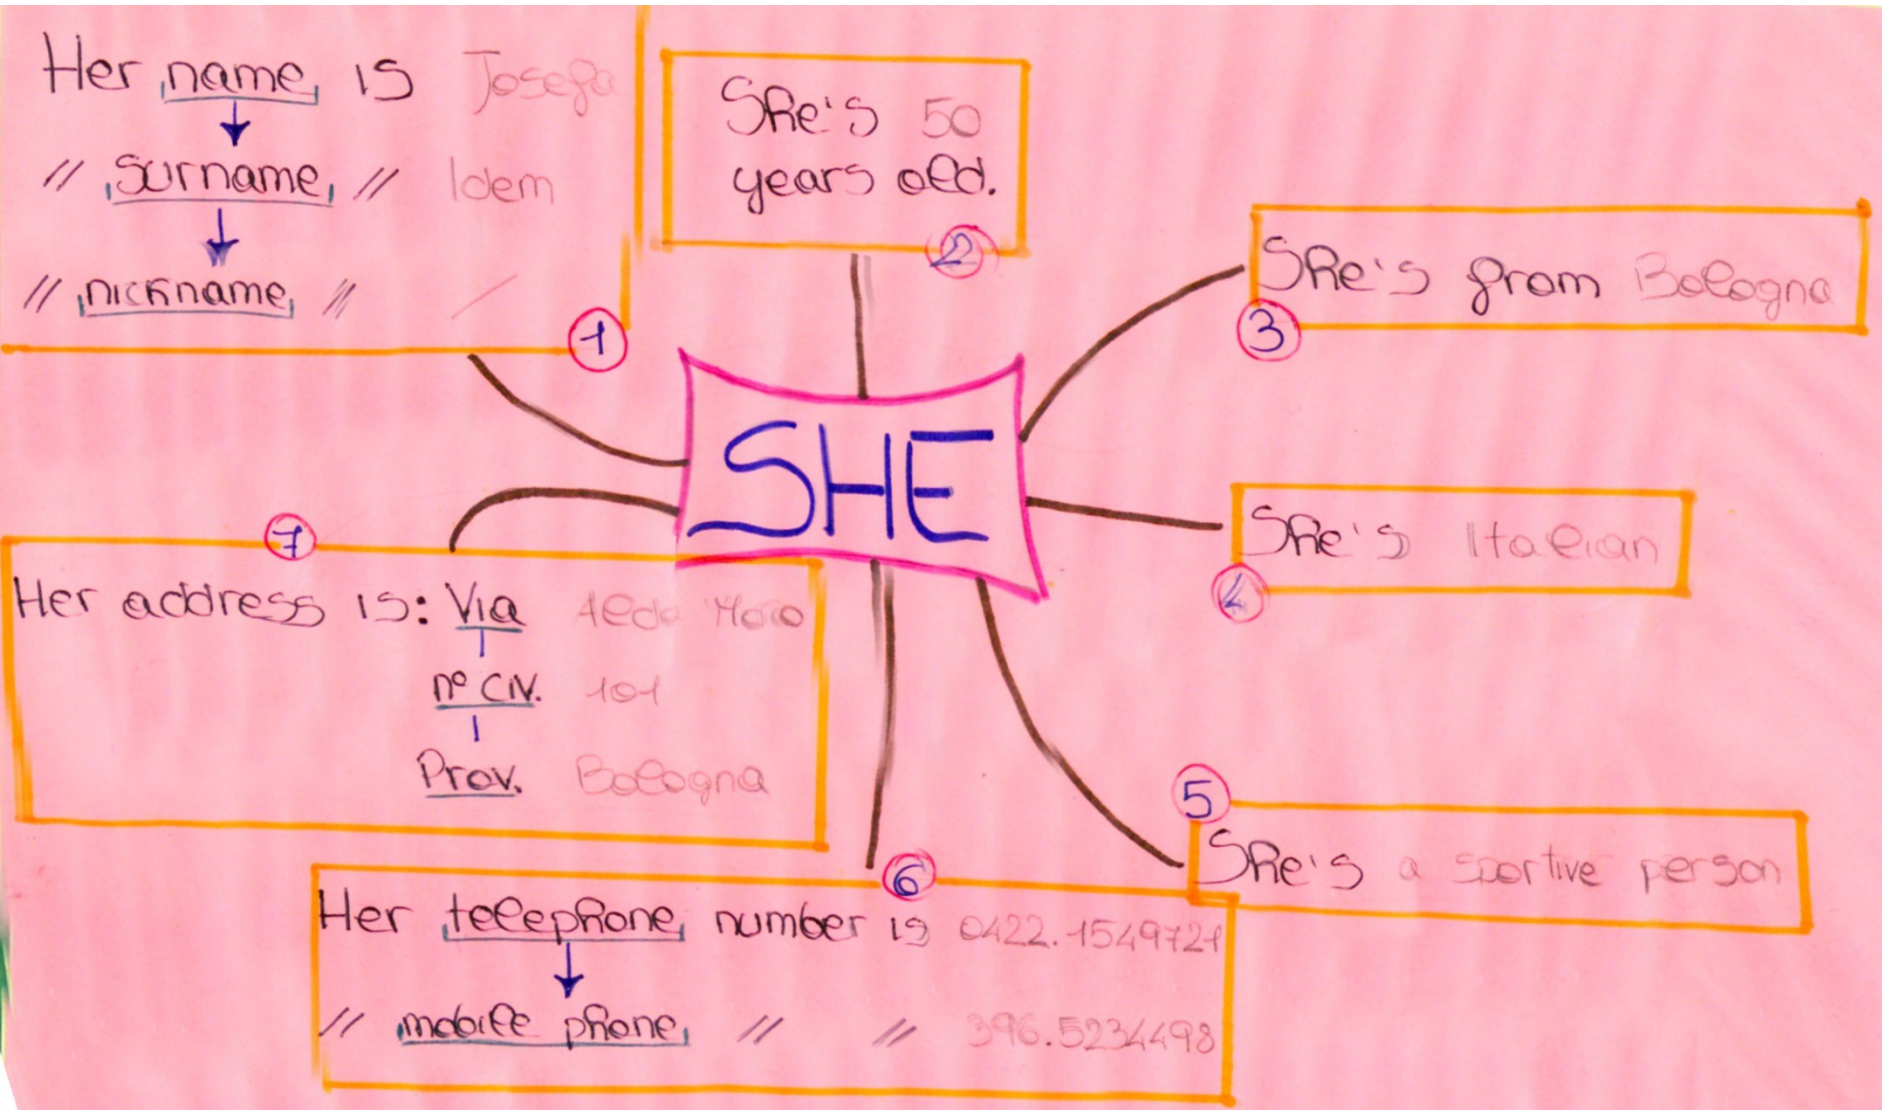 Her name is Josefa
// surname // Idem
// nickname //
1
She's 50
years old.
2
She's from Bologna
3
SHE
She's Italian
4
5
She's a sportive person
6
Her telephone number is 0422.1549721
// mobile phone // // 396.5234498
7
Her address is: Via Aldo Moro
n° civ. 101
Prov. Bologna